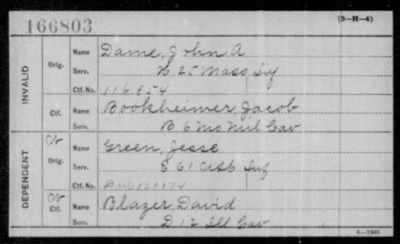 166803 (3-H-4)
INVALID
Orig.
Name Dame, John A
Serv. H 25 Mass Inf
Ctf. No. 116854
Ctf.
Name Bookheimer, Jacob
Serv. B 6 Mo Mil Cav
DEPENDENT
Orig.
Name Green, Jesse
Serv. 61 Inf
Ctf.
Name Blazer, David
Serv. D 12 Ill Cav